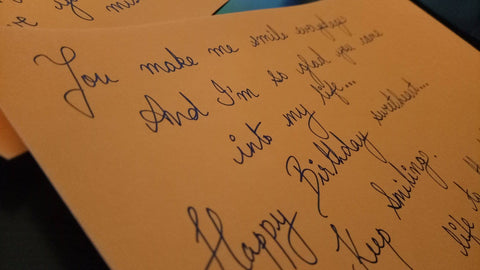 You make me smile everyday
And I'm so glad you came
into my life...
Happy Birthday sweetheart...
Keep Smiling.
life to